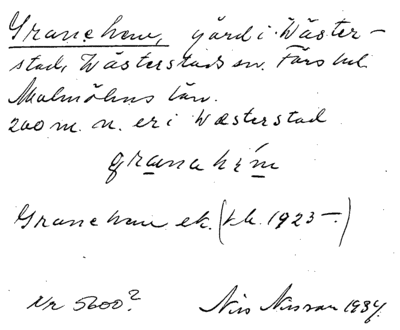 Granehem, gård i Wäster-
stad, Wästerstads sn. Färs hd
Malmöhus län.
200 m. n. er i Wästerstad
granahem
Granehem ek. (t.k. 1923-)
Nr 5600?
Nils Nilsson 1934.